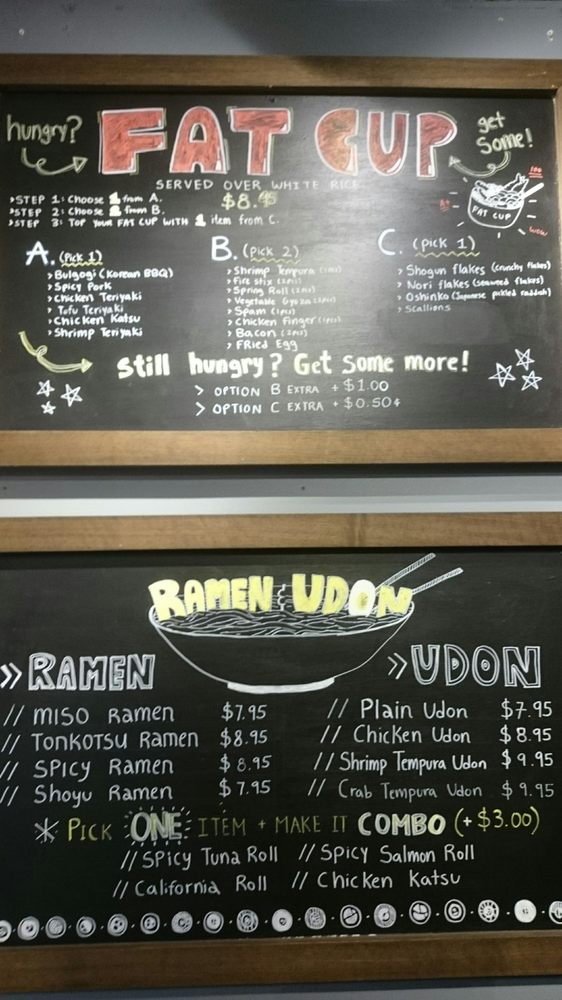 hungry?
FAT CUP
get some!
SERVED OVER WHITE RICE
$8.95
>STEP 1: Choose 1 from A.
>STEP 2: Choose 2 from B.
>STEP 3: TOP YOUR FAT CUP WITH 1 item from C.
FAT CUP
100
WOW
A. (Pick 1)
> Bulgogi (Korean BBQ)
> Spicy Pork
> Chicken Teriyaki
> Tofu Teriyaki
> Chicken Katsu
> Shrimp Teriyaki
B. (pick 2)
> Shrimp Tempura
> Fire Stix (2pcs)
> Spring Roll (2pcs)
> Vegetable Gyoza (2pcs)
> Spam (1pc)
> Chicken Finger (1pc)
> Bacon (2pcs)
> FRied Egg
C. (pick 1)
> Shogun flakes (crunchy flakes)
> Nori flakes (seaweed flakes)
> Oshinko (Japanese pickled raddish)
> Scallions
still hungry? Get some more!
> OPTION B EXTRA + $1.00
> OPTION C EXTRA + $0.50¢
RAMEN & UDON
>> RAMEN
// MISO Ramen $7.95
// TONKOTSU Ramen $8.95
// SPICY Ramen $8.95
// Shoyu Ramen $7.95
>> UDON
// Plain Udon $7.95
// Chicken Udon $8.95
// Shrimp Tempura Udon $9.95
// Crab Tempura Udon $9.95
* PICK ONE ITEM + MAKE IT COMBO (+$3.00)
// SPICY Tuna Roll // Spicy Salmon Roll
// California Roll // Chicken Katsu